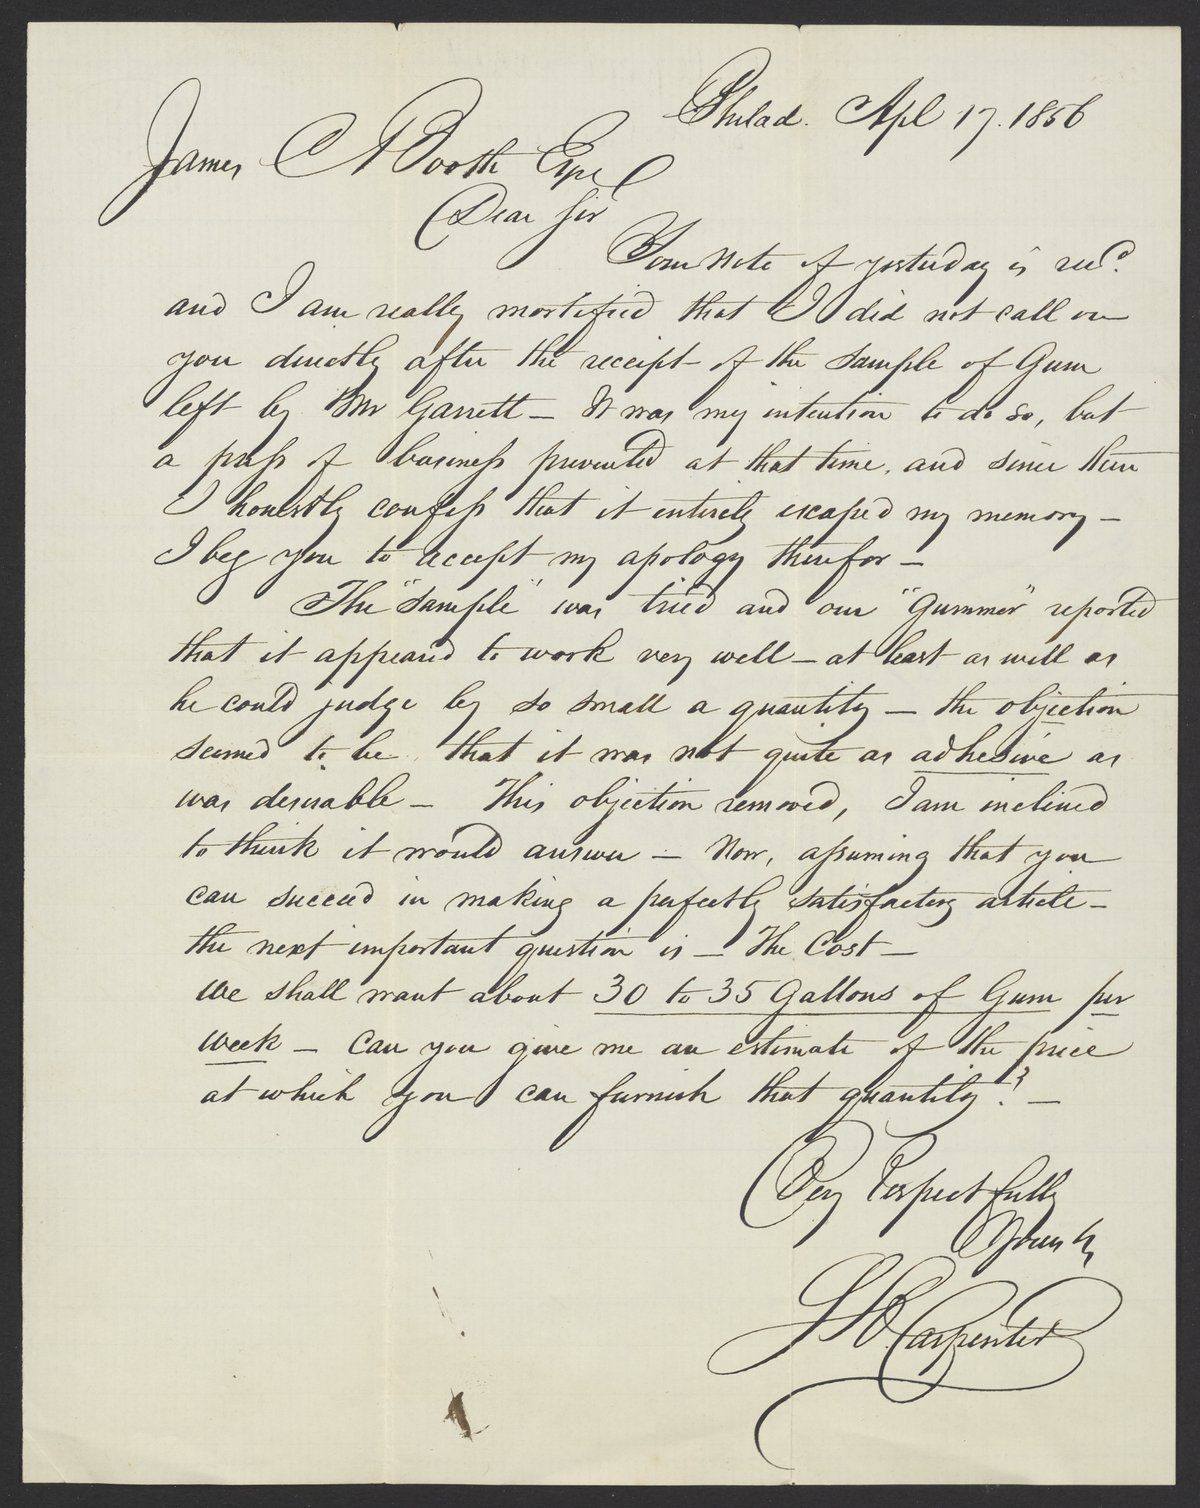 Philad. Apl 17. 1856
James C Booth Esqr
Dear Sir
Your Note of yesterday is recd.
and I am really mortified that I did not call on
you directly after the receipt of the sample of Gum
left by Mr Garrett — It was my intention to do so, but
a press of business prevented at that time, and since then
I honestly confess that it entirely escaped my memory —
I beg you to accept my apology therefor —
The "sample" was tried and our "Gummer" reported
that it appeared to work very well — at least as well as
he could judge by so small a quantity — the objection
seemed to be that it was not quite as adhesive as
was desirable — This objection removed, I am inclined
to think it would answer — Now, assuming that you
can succeed in making a perfectly satisfactory article —
the next important question is — The Cost —
We shall want about 30 to 35 Gallons of Gum per
week — Can you give me an estimate of the price
at which you can furnish that quantity? —
Very Respectfully
Yours &c
Carpenter